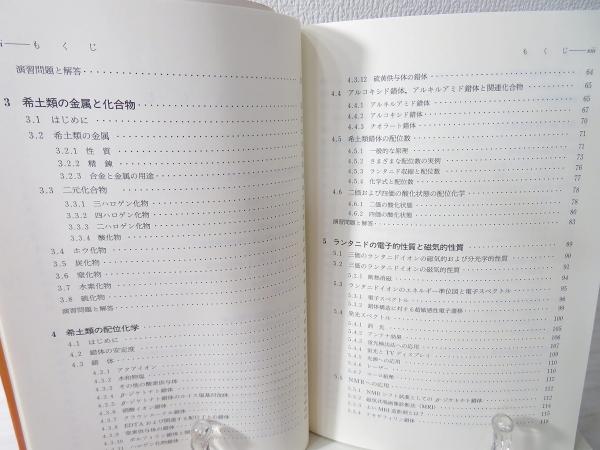 も く じ
演習問題と解答
3 希土類の金属と化合物
3.1 はじめに
3.2 希土類の金属
3.2.1 性 質
3.2.2 精 錬
3.2.3 合金と金属の用途
3.3 二元化合物
3.3.1 三ハロゲン化物
3.3.2 四ハロゲン化物
3.3.3 二ハロゲン化物
3.3.4 酸化物
3.4 ホウ化物
3.5 炭化物
3.6 窒化物
3.7 水素化物
3.8 硫化物
演習問題と解答
4 希土類の配位化学
4.1 はじめに
4.2 錯体の安定度
4.3 錯 体
4.3.1 アクアイオン
4.3.2 水和物塩
4.3.3 その他の酸素供与体
4.3.4 β-ジケトナト錯体
4.3.5 β-ジケトナト錯体のルイス塩基付加体
4.3.6 硝酸イオン錯体
4.3.7 クラウンエーテル錯体
4.3.8 EDTAおよび関連する配位子との錯体
4.3.9 窒素供与体の錯体
4.3.11 ハロゲン化物錯体
も く じ xiii
4.3.12 硫黄供与体の錯体 64
4.4 アルコキシド錯体，アルキルアミド錯体と関連化合物 65
4.4.1 アルキルアミド錯体 65
4.4.2 アルコキシド錯体 67
4.4.3 チオラート錯体 70
4.5 希土類錯体の配位数 71
4.5.1 一般的な原理 71
4.5.2 さまざまな配位数の実例
4.5.3 ランタニド収縮と配位数
4.5.4 化学式と配位数
4.6 二価および四価の酸化状態の配位化学 78
4.6.1 二価の酸化状態 78
4.6.2 四価の酸化状態 80
演習問題と解答 83
5 ランタニドの電子的性質と磁気的性質 89
5.1 三価のランタニドイオンの磁気的および分光学的性質 90
5.2 三価のランタニドイオンの磁気的性質 91
5.2.1 断熱消磁 94
5.3 ランタニドイオンのエネルギー準位図と電子スペクトル
5.3.1 電子スペクトル
5.3.2 錯体構造に対する超敏感性電子遷移
5.4 発光スペクトル 100
5.4.2 アンテナ効果
5.4.4 蛍光とTVディスプレイ
5.4.6 レーザー
5.5 NMRへの応用
5.5.1 NMRシフト試薬としてのβ-ジケトナト錯体
5.5.2 磁気共鳴画像診断法(MRI)
5.5.3 よいMRI造影剤とは？